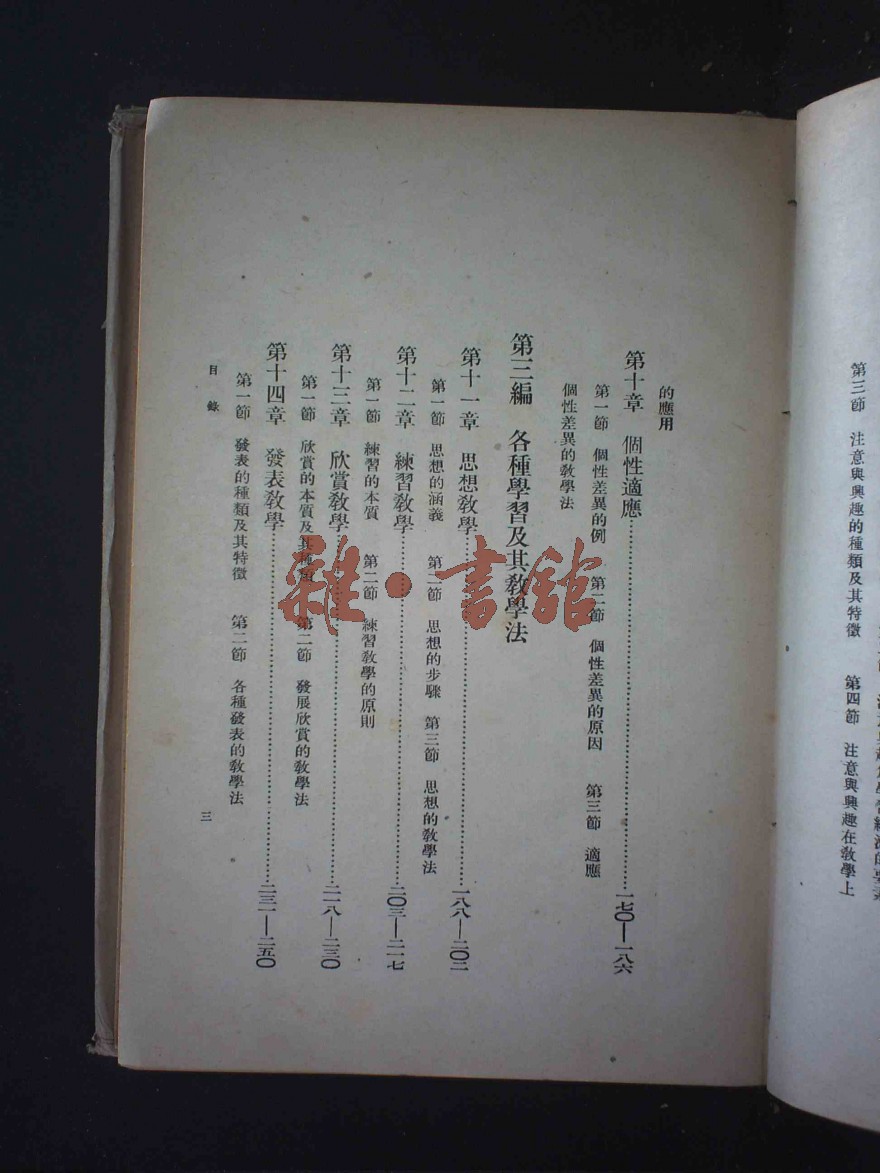 第三節　注意與興趣的種類及其特徵　第四節　注意與興趣在教學上
的應用
第十章　個性適應……一七〇—一八六
第一節　個性差異的例　第二節　個性差異的原因　第三節　適應
個性差異的教學法
第三編　各種學習及其教學法
第十一章　思想教學……一八八—二〇二
第一節　思想的涵義　第二節　思想的步驟　第三節　思想的教學法
第十二章　練習教學……二〇三—二一七
第一節　練習的本質　第二節　練習教學的原則
第十三章　欣賞教學……二一八—二三〇
第一節　欣賞的本質及其種類　第二節　發展欣賞的教學法
第十四章　發表教學……二三一—二五〇
第一節　發表的種類及其特徵　第二節　各種發表的教學法
目錄
三
雜·書館